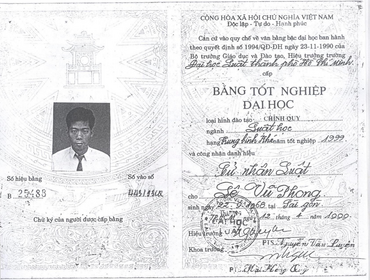 Số hiệu bằng
Số vào sổ
B 25483
Chữ ký của người được cấp bằng
CỘNG HÒA XÃ HỘI CHỦ NGHĨA VIỆT NAM
Độc lập - Tự do - Hạnh phúc
Căn cứ vào quy chế về văn bằng bậc đại học ban hành
theo quyết định số 1994/QĐ-ĐH ngày 23-11-1990 của
Bộ trưởng Giáo dục và Đào tạo, Hiệu trưởng trường
Đại học Luật thành phố Hồ Chí Minh
cấp
BẰNG TỐT NGHIỆP
ĐẠI HỌC
loại hình đào tạo: CHÍNH QUY
ngành Luật học
hạng Trung bình Khá năm tốt nghiệp 1999
và công nhận danh hiệu
Cử nhân Luật
Lê Vũ Phong
sinh ngày 22-9-1968 tại Sài gòn
ngày 12 tháng 4 năm 2000
ĐẠI HỌC
Hiệu trưởng
Khoa trưởng
PTS. Nguyễn Văn Luyện